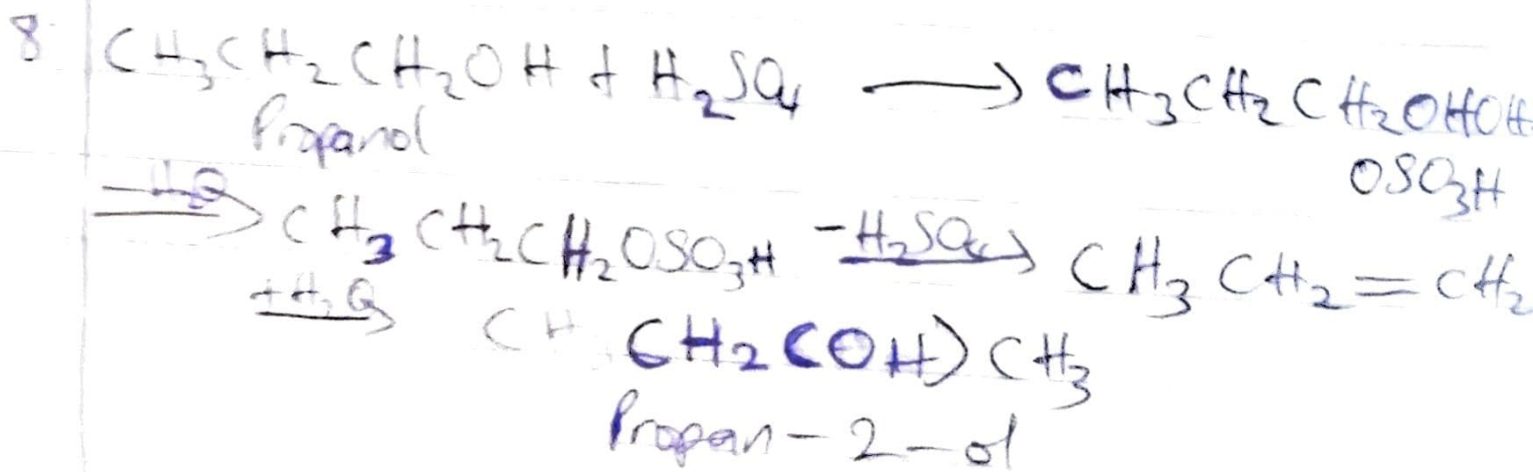 8 CH₃CH₂CH₂OH + H₂SO₄ ⟶ CH₃CH₂CH₂OHOH
Propanol
OSO₃H
-H₂O⟶ CH₃CH₂CH₂OSO₃H -H₂SO₄⟶ CH₃CH₂=CH₂
+H₂O⟶ CH CH₂COH)CH₃
Propan-2-ol